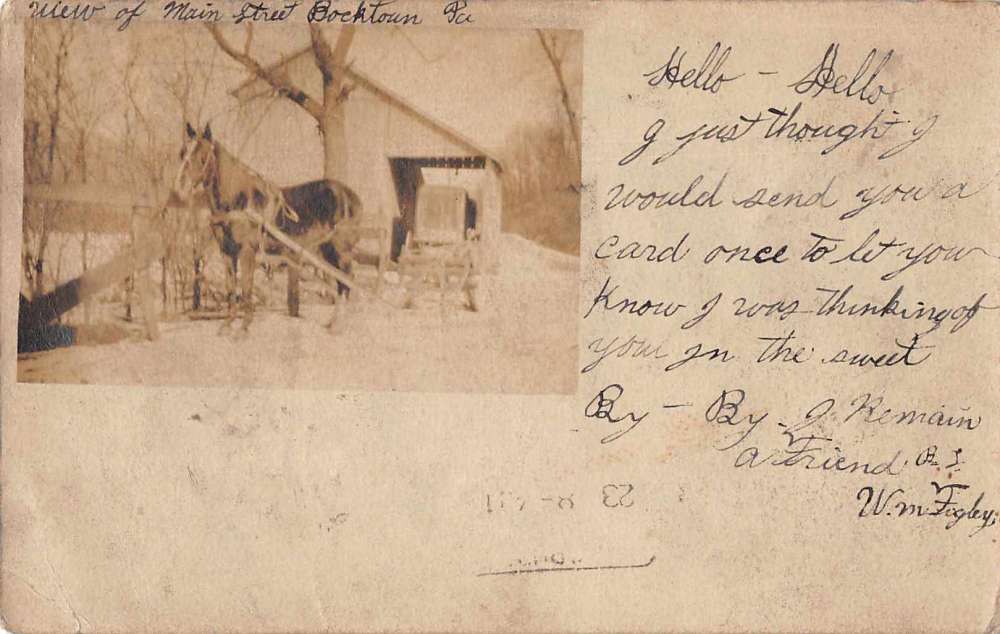 View of Main Street Bocktown Pa
Hello - Hello
I just thought I
would send you a
card once to let you
Know I was thinking of
you in the sweet
By - By. I Remain
a Friend
W.m Figley